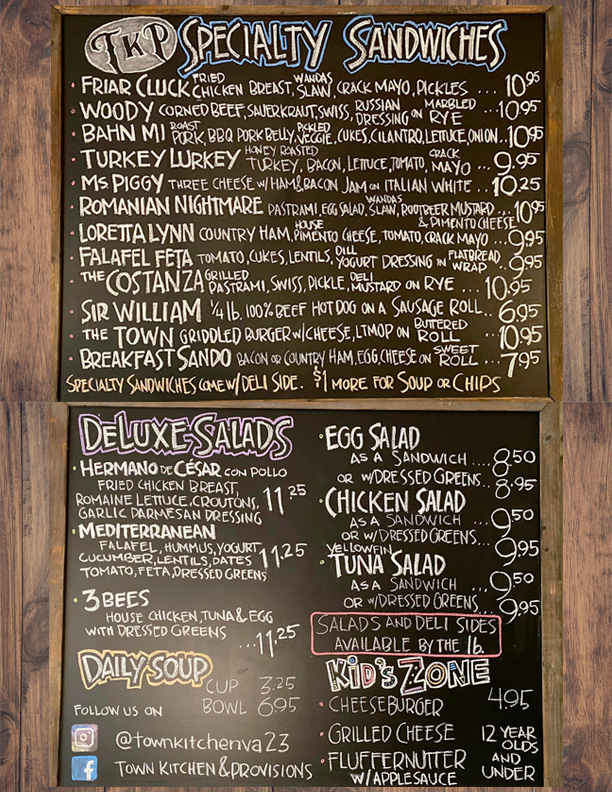 TKP SPECIALTY SANDWICHES
• FRIAR CLUCK FRIED CHICKEN BREAST, WANDAS SLAW, CRACK MAYO, PICKLES ... 10.95
• WOODY CORNED BEEF, SAUERKRAUT, SWISS, RUSSIAN DRESSING ON MARBLED RYE ...10.95
• BAHN MI ROAST PORK, BBQ PORK BELLY, PICKLED VEGGIE, CUKES, CILANTRO, LETTUCE, ONION...10.95
• TURKEY LURKEY HONEY ROASTED TURKEY, BACON, LETTUCE, TOMATO, CRACK MAYO ... 9.95
• MS. PIGGY THREE CHEESE W/ HAM & BACON JAM ON ITALIAN WHITE ...10.25
• ROMANIAN NIGHTMARE PASTRAMI, EGG SALAD, WANDAS SLAW, ROOTBEER MUSTARD & PIMENTO CHEESE ...10.95
• LORETTA LYNN COUNTRY HAM, HOUSE PIMENTO CHEESE, TOMATO, CRACK MAYO ... 9.95
• FALAFEL FETA TOMATO, CUKES, LENTILS, DILL YOGURT DRESSING IN FLATBREAD WRAP ..9.95
• THE COSTANZA GRILLED PASTRAMI, SWISS, PICKLE, DELI MUSTARD ON RYE ... 10.95
• SIR WILLIAM 1/4 lb. 100% BEEF HOT DOG ON A SAUSAGE ROLL.. 6.95
• THE TOWN GRIDDLED BURGER W/ CHEESE, LTMOP ON BUTTERED ROLL ... 10.95
• BREAKFAST SANDO BACON OR COUNTRY HAM, EGG, CHEESE ON SWEET ROLL ... 7.95
SPECIALTY SANDWICHES COME W/ DELI SIDE. $1 MORE FOR SOUP OR CHIPS
DELUXE SALADS
• HERMANO DE CÉSAR CON POLLO
FRIED CHICKEN BREAST,
ROMAINE LETTUCE, CROUTONS, 11.25
GARLIC PARMESAN DRESSING
• MEDITERRANEAN
FALAFEL, HUMMUS, YOGURT
CUCUMBER, LENTILS, DATES 11.25
TOMATO, FETA, DRESSED GREENS
• 3 BEES
HOUSE CHICKEN, TUNA & EGG
WITH DRESSED GREENS ...11.25
DAILY SOUP
CUP 3.25
BOWL 6.95
FOLLOW US ON
@townkitchenva23
TOWN KITCHEN & PROVISIONS
• EGG SALAD
AS A SANDWICH .... 8.50
OR W/DRESSED GREENS.. 8.95
• CHICKEN SALAD
AS A SANDWICH ... 9.50
OR W/ DRESSED GREENS... 9.95
• YELLOWFIN TUNA SALAD
AS A SANDWICH ... 9.50
OR W/DRESSED GREENS... 9.95
SALADS AND DELI SIDES
AVAILABLE BY THE lb.
KID'S ZZONE
• CHEESEBURGER 4.95
• GRILLED CHEESE
• FLUFFERNUTTER
W/ APPLESAUCE
12 YEAR
OLDS
AND
UNDER